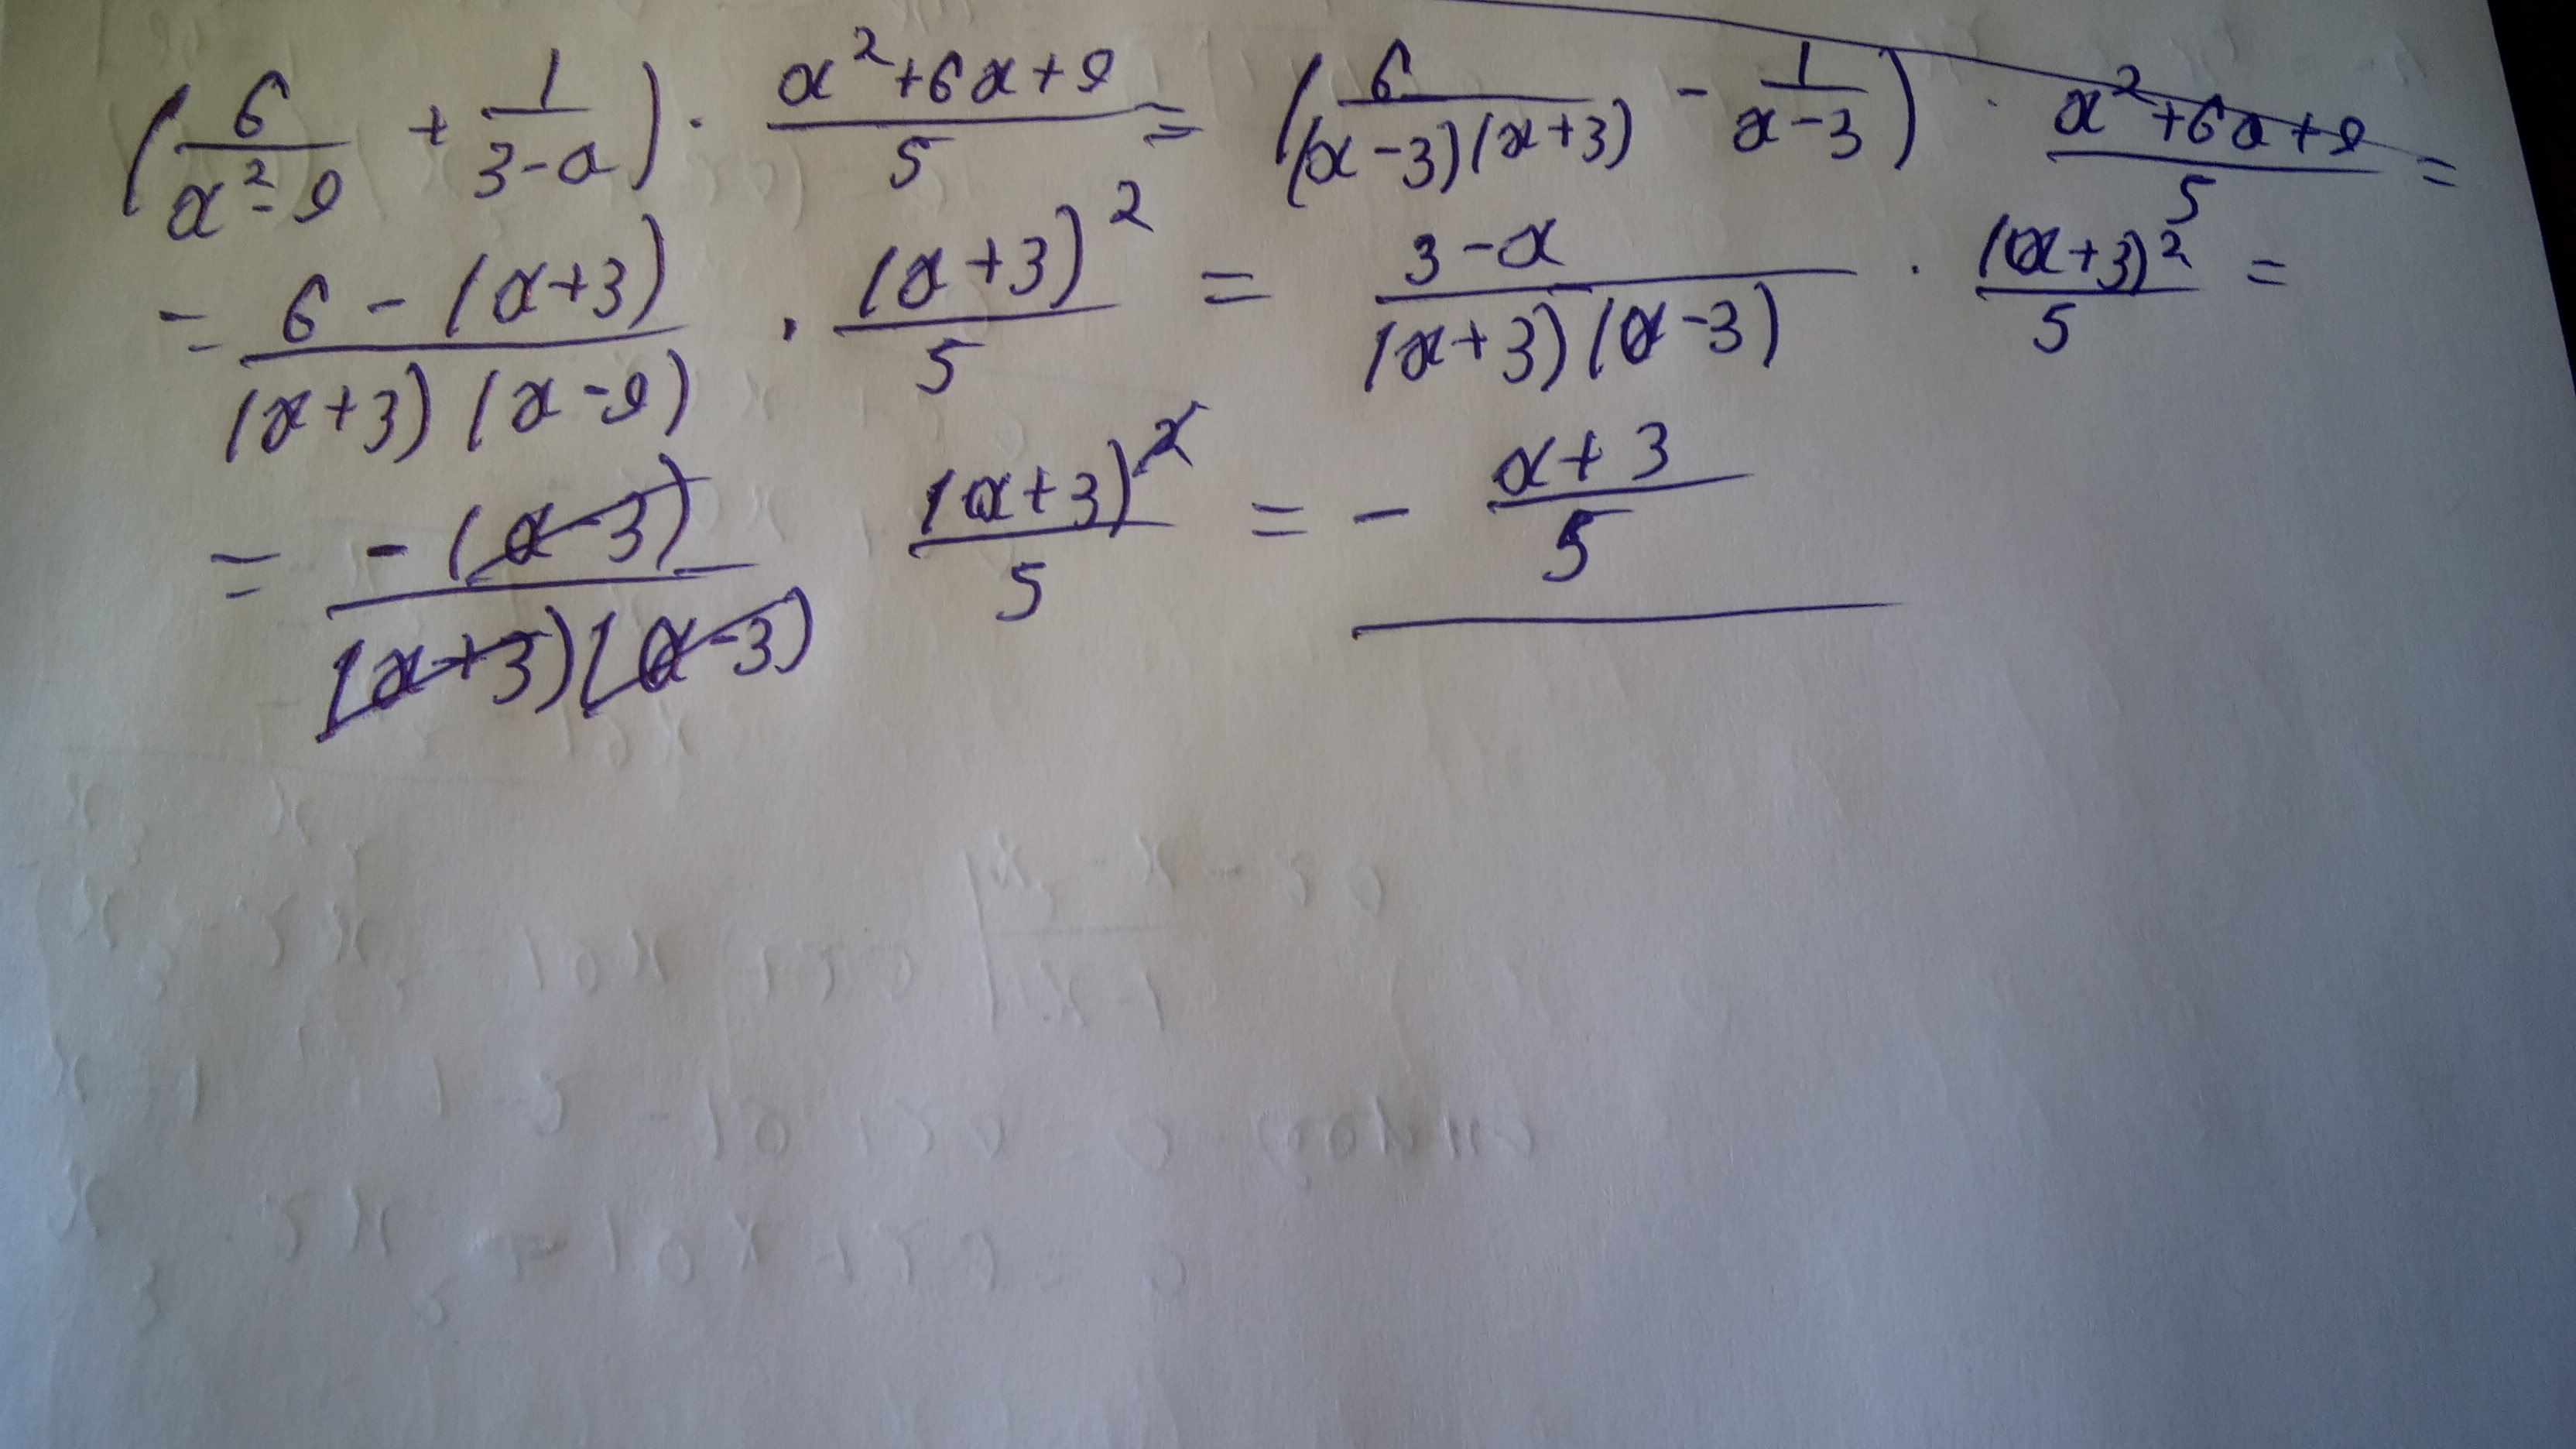 (6/(a²-9) + 1/(3-a)) · (a²+6a+9)/5 = (6/((a-3)(a+3)) - 1/(a-3)) · (a²+6a+9)/5 =
= (6-(a+3))/((a+3)(a-9)) · (a+3)²/5 = (3-a)/((a+3)(a-3)) · (a+3)²/5 =
= -(a-3)/((a+3)(a-3)) (a+3)²/5 = - (a+3)/5